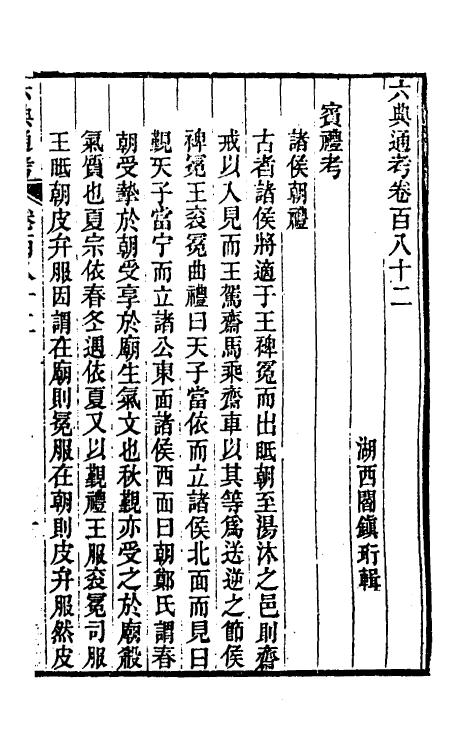 六典通考卷百八十二
湖西閻鎮珩輯
賓禮考
諸侯朝禮
古者諸侯將適于王裨冕而出眡朝至湯沐之邑則齋
戒以入見而王駕齋馬乘齋車以其等爲送逆之節侯
裨冕王衮冕曲禮曰天子當依而立諸侯北面而見曰
覲天子當宁而立諸公東面諸侯西面曰朝鄭氏謂春
朝受摯於朝受享於廟生氣文也秋覲亦受之於廟殺
氣質也夏宗依春冬遇依夏又以覲禮王服衮冕司服
王眡朝皮弁服因謂在廟則冕服在朝則皮弁服然皮
六典通考
卷百八十二
一